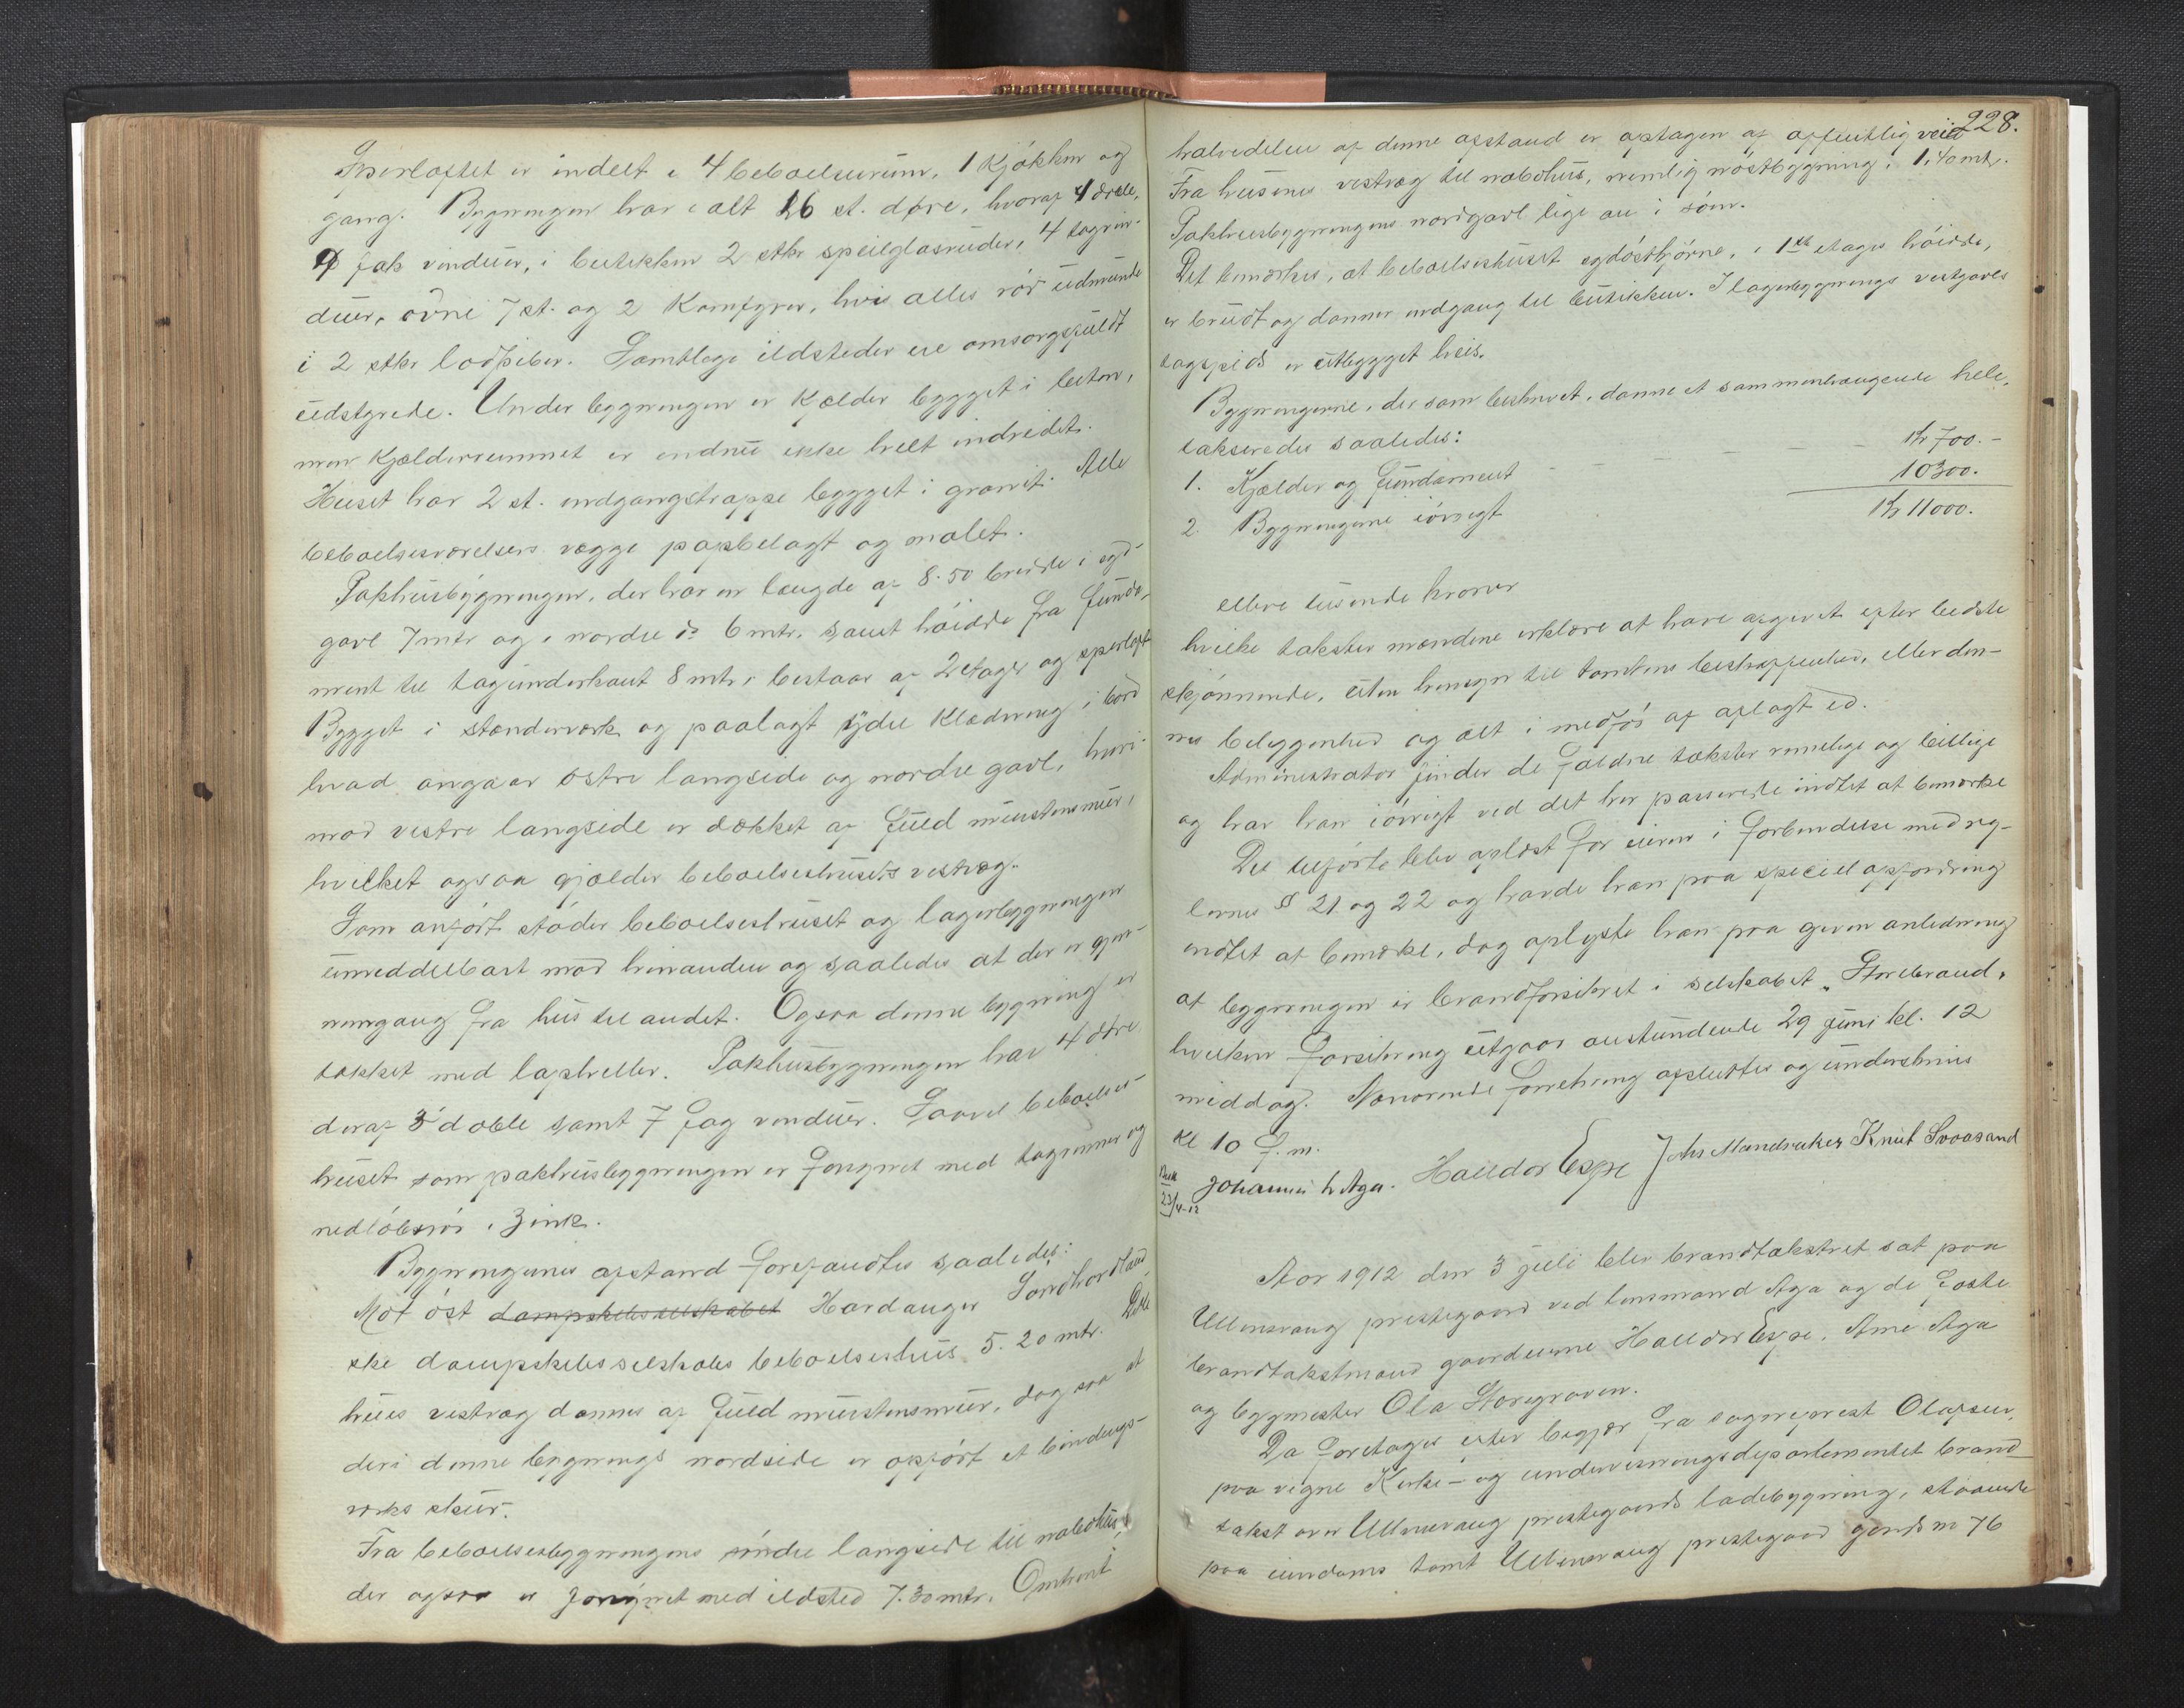 Sperloftet er indelt i 4 beboelsesrum, 1 kjøkken og
gang. Bygningen har i alt 16 st. døre, hvoraf 4 doble,
9 fak vinduer, i butikken 2 stkr speilglasruder, 4 tagvin-
duer, ovne 7 st. og 2 komfyrer, hvis alles rør udmunde
i 2 stkr lodpiber. Samtlige ildsteder ere omsorgsfuldt
udstyrede. Under bygningen er kjelder bygget i beton,
men kjelderrummet er endnu ikke helt indredet.
Huset har 2 st. indgangstrappe bygget i granit. Alle
beboelsesværelsers vægge papbelagt og malet.
Pakhusbygningen, der har en længde af 8.50 bredde i syd-
gavl 7 mtr og i nordre do 6 mtr. samt høide fra funda-
ment til tagunderkant 8 mtr. bestaar af 2 etager og sperloft
Bygget i stenderverk og paalagt ydre klædning i bord
hvad angaar østre langside og nordre gavl, hvori-
mod vestre langside er dækket af fuld murstensmur,
hvilket ogsaa gjælder beboelseshusets vestvæg.
Som anført støder beboelseshuset og lagerbygningen
umiddelbart mod hinanden og saaledes at der er gjen-
nemgang fra hus til andet. Ogsaa denne bygning er
tækket med lapheller. Pakhusbygningen har 4 døre
deraf 3 doble samt 7 fag vinduer. Saavel beboelses-
huset som pakhusbygningen er forsynet med tagrenner og
nedløbsrør i zink.
Bygningernes afstand forefandtes saaledes:
Mot øst dampskibsselskabet Hardanger Søndhordland
ske dampskibsselskabs beboelseshus 5.20 mtr. Dette
huus vestvæg dannes af fuld murstensmur, dog saa at
der i denne bygnings nordside er opført et bindings-
verks skur.
Fra beboelsesbygningens søndre langside til nabohus,
der ogsaa er forsynet med ildsted 7.30 mtr. Omtrent
228.
halvedelen af denne afstand er optagen af offentlig vei
Fra husenes vestvæg til nabohus, nemlig nøstbygning, 1,40 mtr.
Pakhusbygningens nordgavl lige an i søm.
Det bemærkes, at beboelseshuset sydøsthjørne, i 1ste etages høide,
er brudt og danner indgang til butikken. I lagerbygnings vestgavls
tagspids er utbygget heis.
Bygningerne, der som beskrevet, danne et sammenhængende hele,
takseredes saaledes:
1. Kjelder og fundament - - - - - Kr 700.-
2. Bygningerne iøvrigt 10300.
Kr 11000.
elleve tusinde kroner
hvilke takster mændene erklære at have afgivet efter bedste
skjønnende, uten hensyn til tomtens beskaffenhed, eller den-
nes beliggenhed og alt i medfør af aflagt ed.
Administrator finder de fældne takster rimelige og billige
og har han iøvrigt ved det her passerede indtet at bemærke
Det tilførte blev oplæst for eieren i forbindelse med reg-
lernes §§ 21 og 22 og havde han paa speciel opfordring
indtet at bemærke, dog oplyste han paa given anledning
at bygningen er brandforsikret i selskabet "Storebrand,
hvilken forsikring utgaar anstundende 29 juni kl. 12
middag. Nærværende forretning afsluttes og underskrives
kl 10 f.m.
Johannes L Aga. Halldor Espe Johs Mandraker Knut Svaasand
23/4-12
Aar 1912 den 3 juli blev brandtakstret sat paa
Ullensvang prestegaard ved lensmand Aga og de faste
brandtakstmænd gaardeierne Halldor Espe, Arne Aga
og bygmester Ola Storegraven.
Da foretages efter begjær fra sogneprest Olafsen,
paa vegne Kirke- og undervisningsdepartementet brand-
takst over Ullensvang prestegaards ladebygning, staaende
paa eiendoms tomt Ullensvang prestegaard gards nr 76